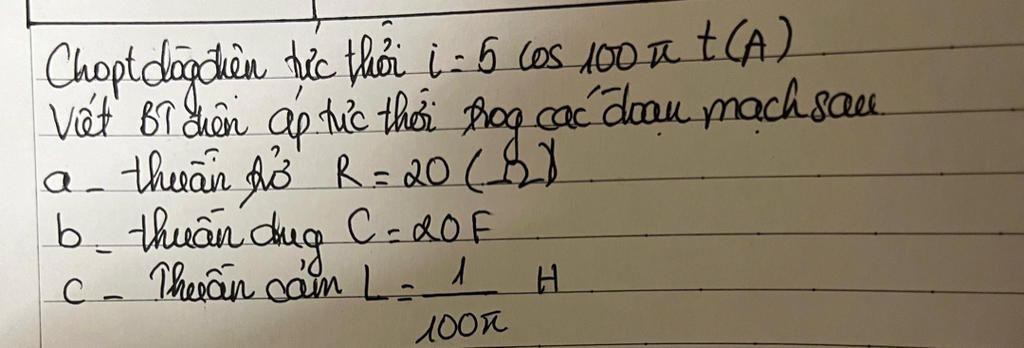 Cho pt dòg điện tức thời i = 5 cos 100π t (A)
Viết BT điện áp tức thời trog các đoạn mạch sau
a - thuần trở R = 20 (Ω)
b - thuần dug C = 20 F
c - Thuần cảm L = 1/100π H